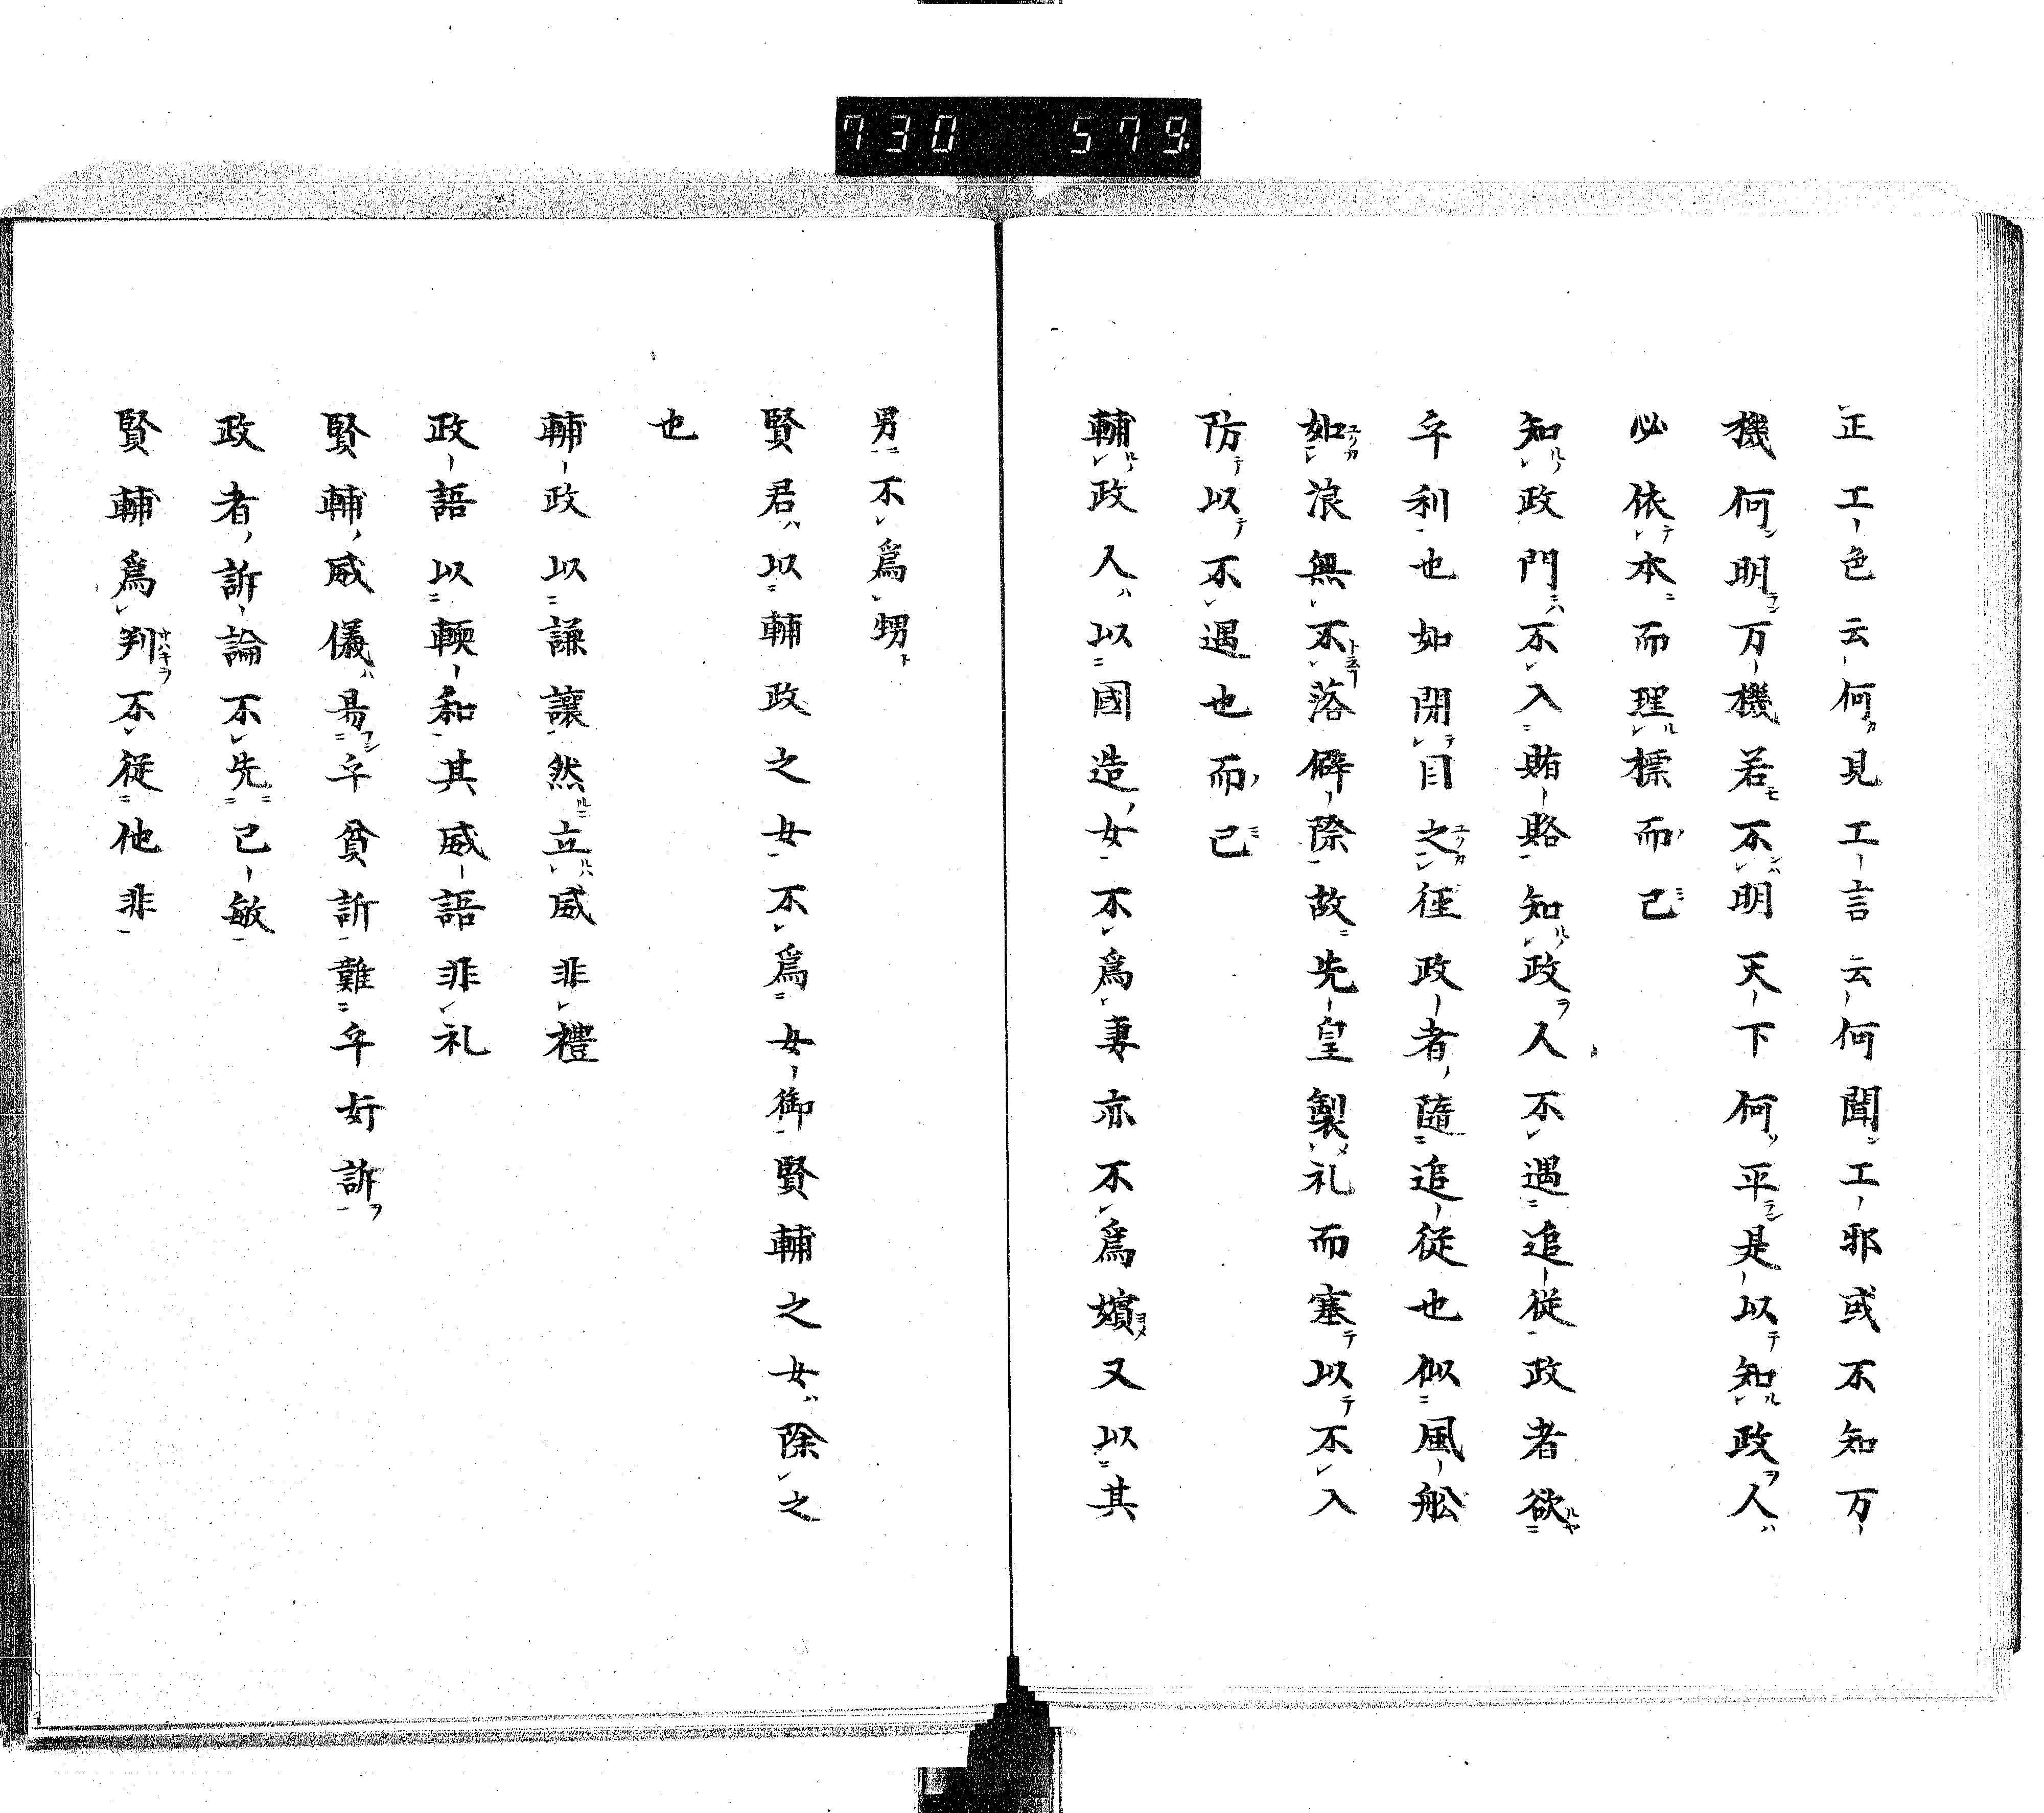 730 579
正工色云何見工言云何聞工邪或不知万
機何明万機若不明天下何平是以知政人
必依本而理標而已
知政門不入賄賂知政人不遇追従政者欲
乎利也如閉目之径政者隨追従也似風舩
如浪無不落僻際故先皇製礼而塞以不入
防以不遇也而已
輔政人以國造女不為妻亦不為嬪又以其
男不為甥
賢君以輔政之女不為女御賢輔之女除之
也
輔政以謙讓然立威非禮
政語以輭和其威語非礼
賢輔威儀易乎貧訴難乎奸訴
政者訴論不先已敏
賢輔為判不従他非